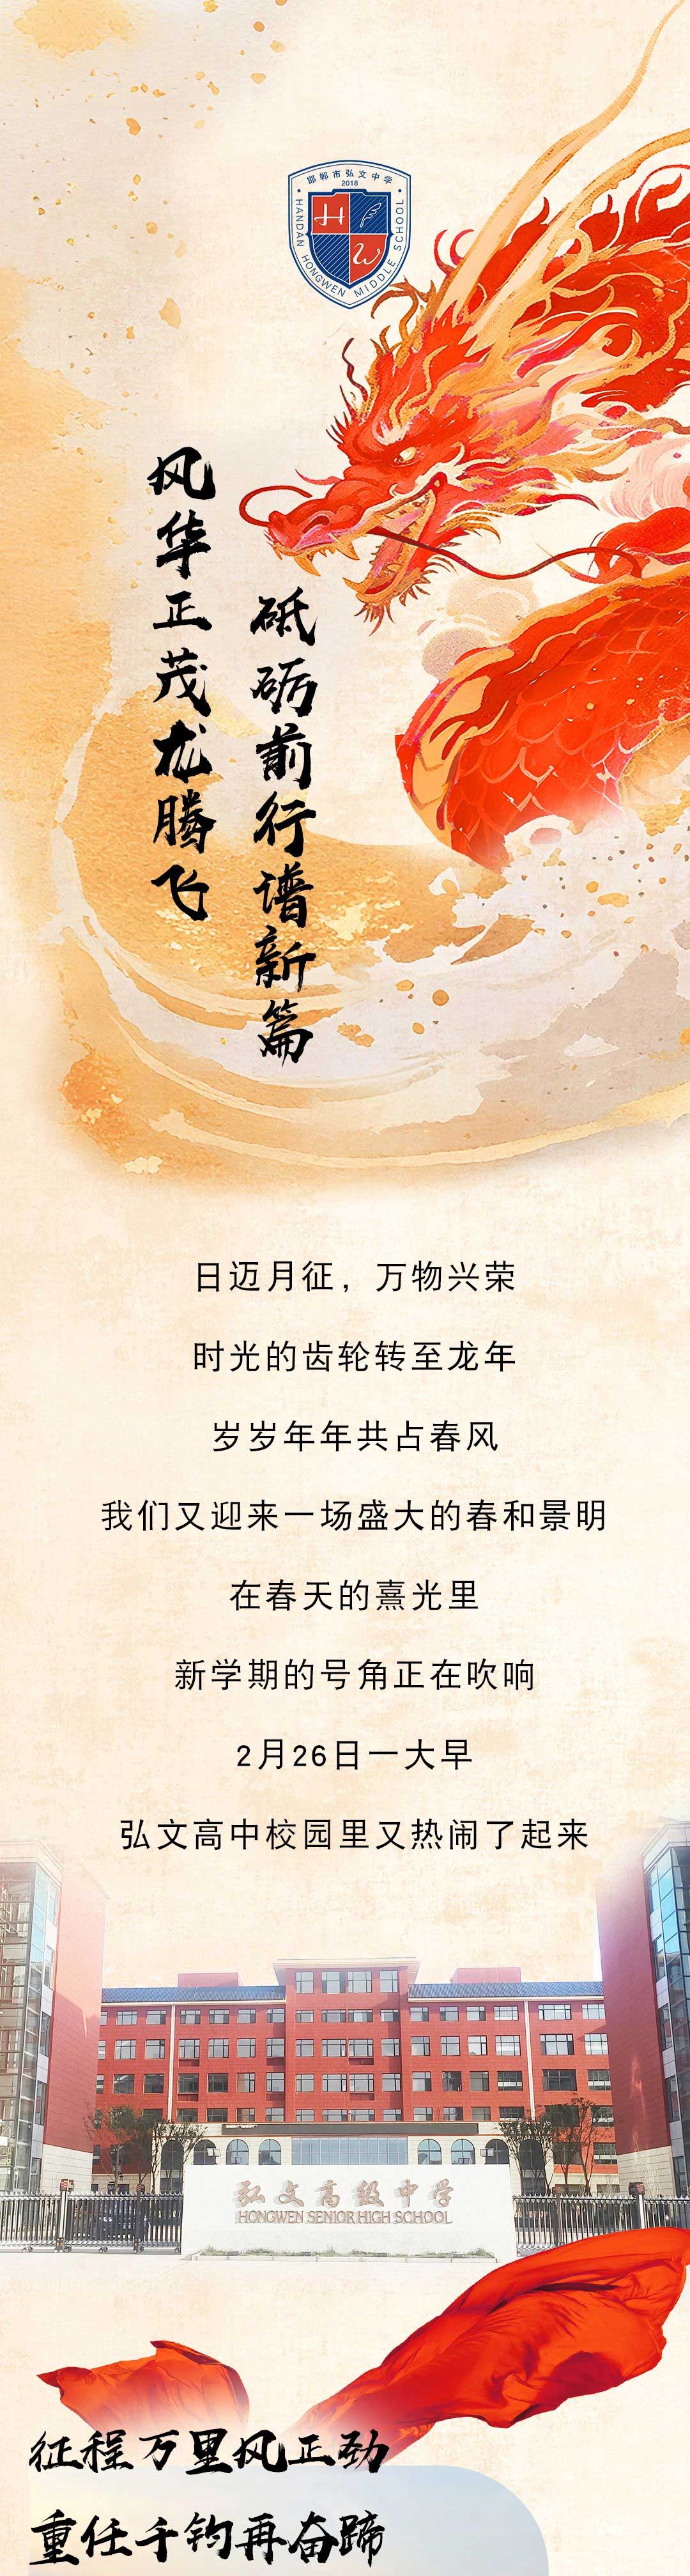 邯郸市弘文中学
2018
HANDAN HONGWEN MIDDLE SCHOOL
H
W
风华正茂龙腾飞
砥砺前行谱新篇
日迈月征，万物兴荣
时光的齿轮转至龙年
岁岁年年共占春风
我们又迎来一场盛大的春和景明
在春天的熹光里
新学期的号角正在吹响
2月26日一大早
弘文高中校园里又热闹了起来
弘文高级中学
HONGWEN SENIOR HIGH SCHOOL
征程万里风正劲
重任千钧再奋蹄